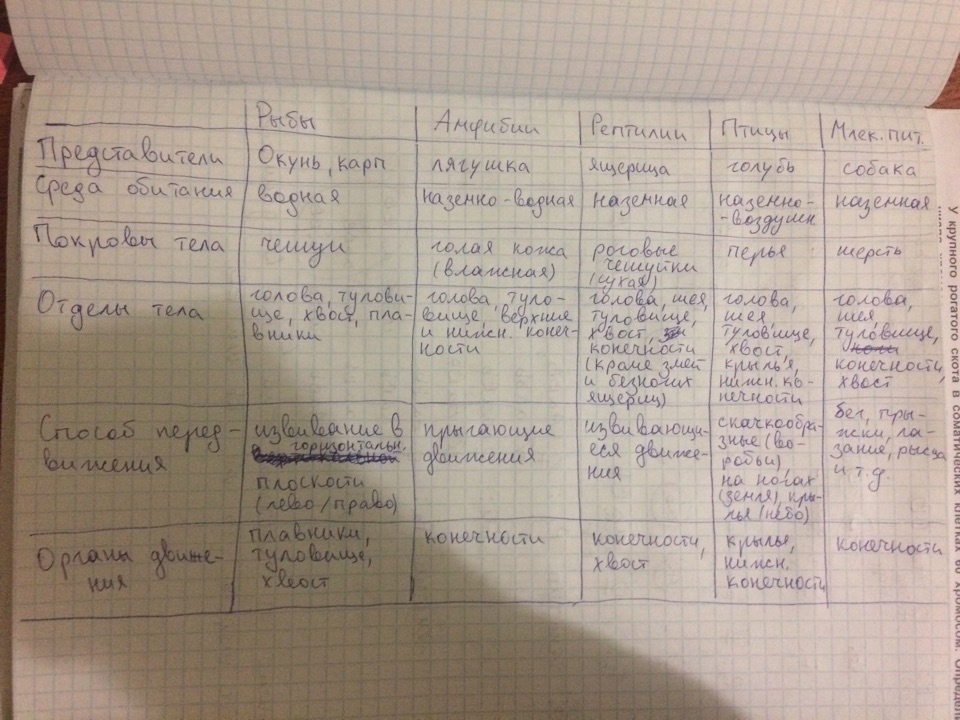 Рыбы Амфибии Рептилии Птицы Млек.пит.
Представители Окунь, карп лягушка ящерица голубь собака
Среда обитания водная наземно-водная наземная наземно-
-воздушн наземная
Покровы тела чешуи голая кожа
(влажная) роговые
чешуйки
(сухая) перья шерсть
Отделы тела голова, тулови-
ще, хвост, пла-
вники голова, туло-
вище, верхние
и нижн. конеч-
ности голова, шея,
туловище,
хвост,
конечности
(кроме змей
и безногих
ящериц) голова,
шея,
туловище,
хвост,
крылья,
нижн. ко-
нечности голова,
шея
туловище,
конечности,
хвост
Способ перед-
вижения извивание в
горизонтальн.
плоскости
(лево/право) прыгающие
движения извивающи-
еся движе-
ния скачкообра-
зные (во-
робьи)
на ногах
(земля), кры-
лья (небо) бег, пры-
жки, ла-
зание, рысца
и т.д.
Органы движе-
ния плавники,
туловище,
хвост конечности конечности,
хвост крылья,
нижн.
конечности конечности
У крупного рогатого скота в соматических клетках 60 хромосом. Определ